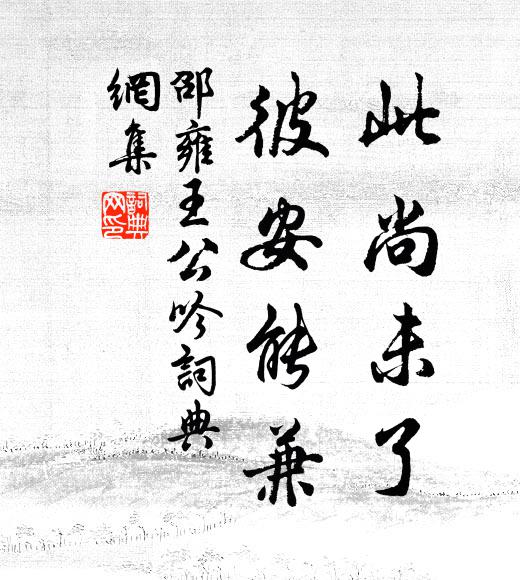 此尚未了
彼安能兼
邵雍王公吟詞典
網集
詞典網印